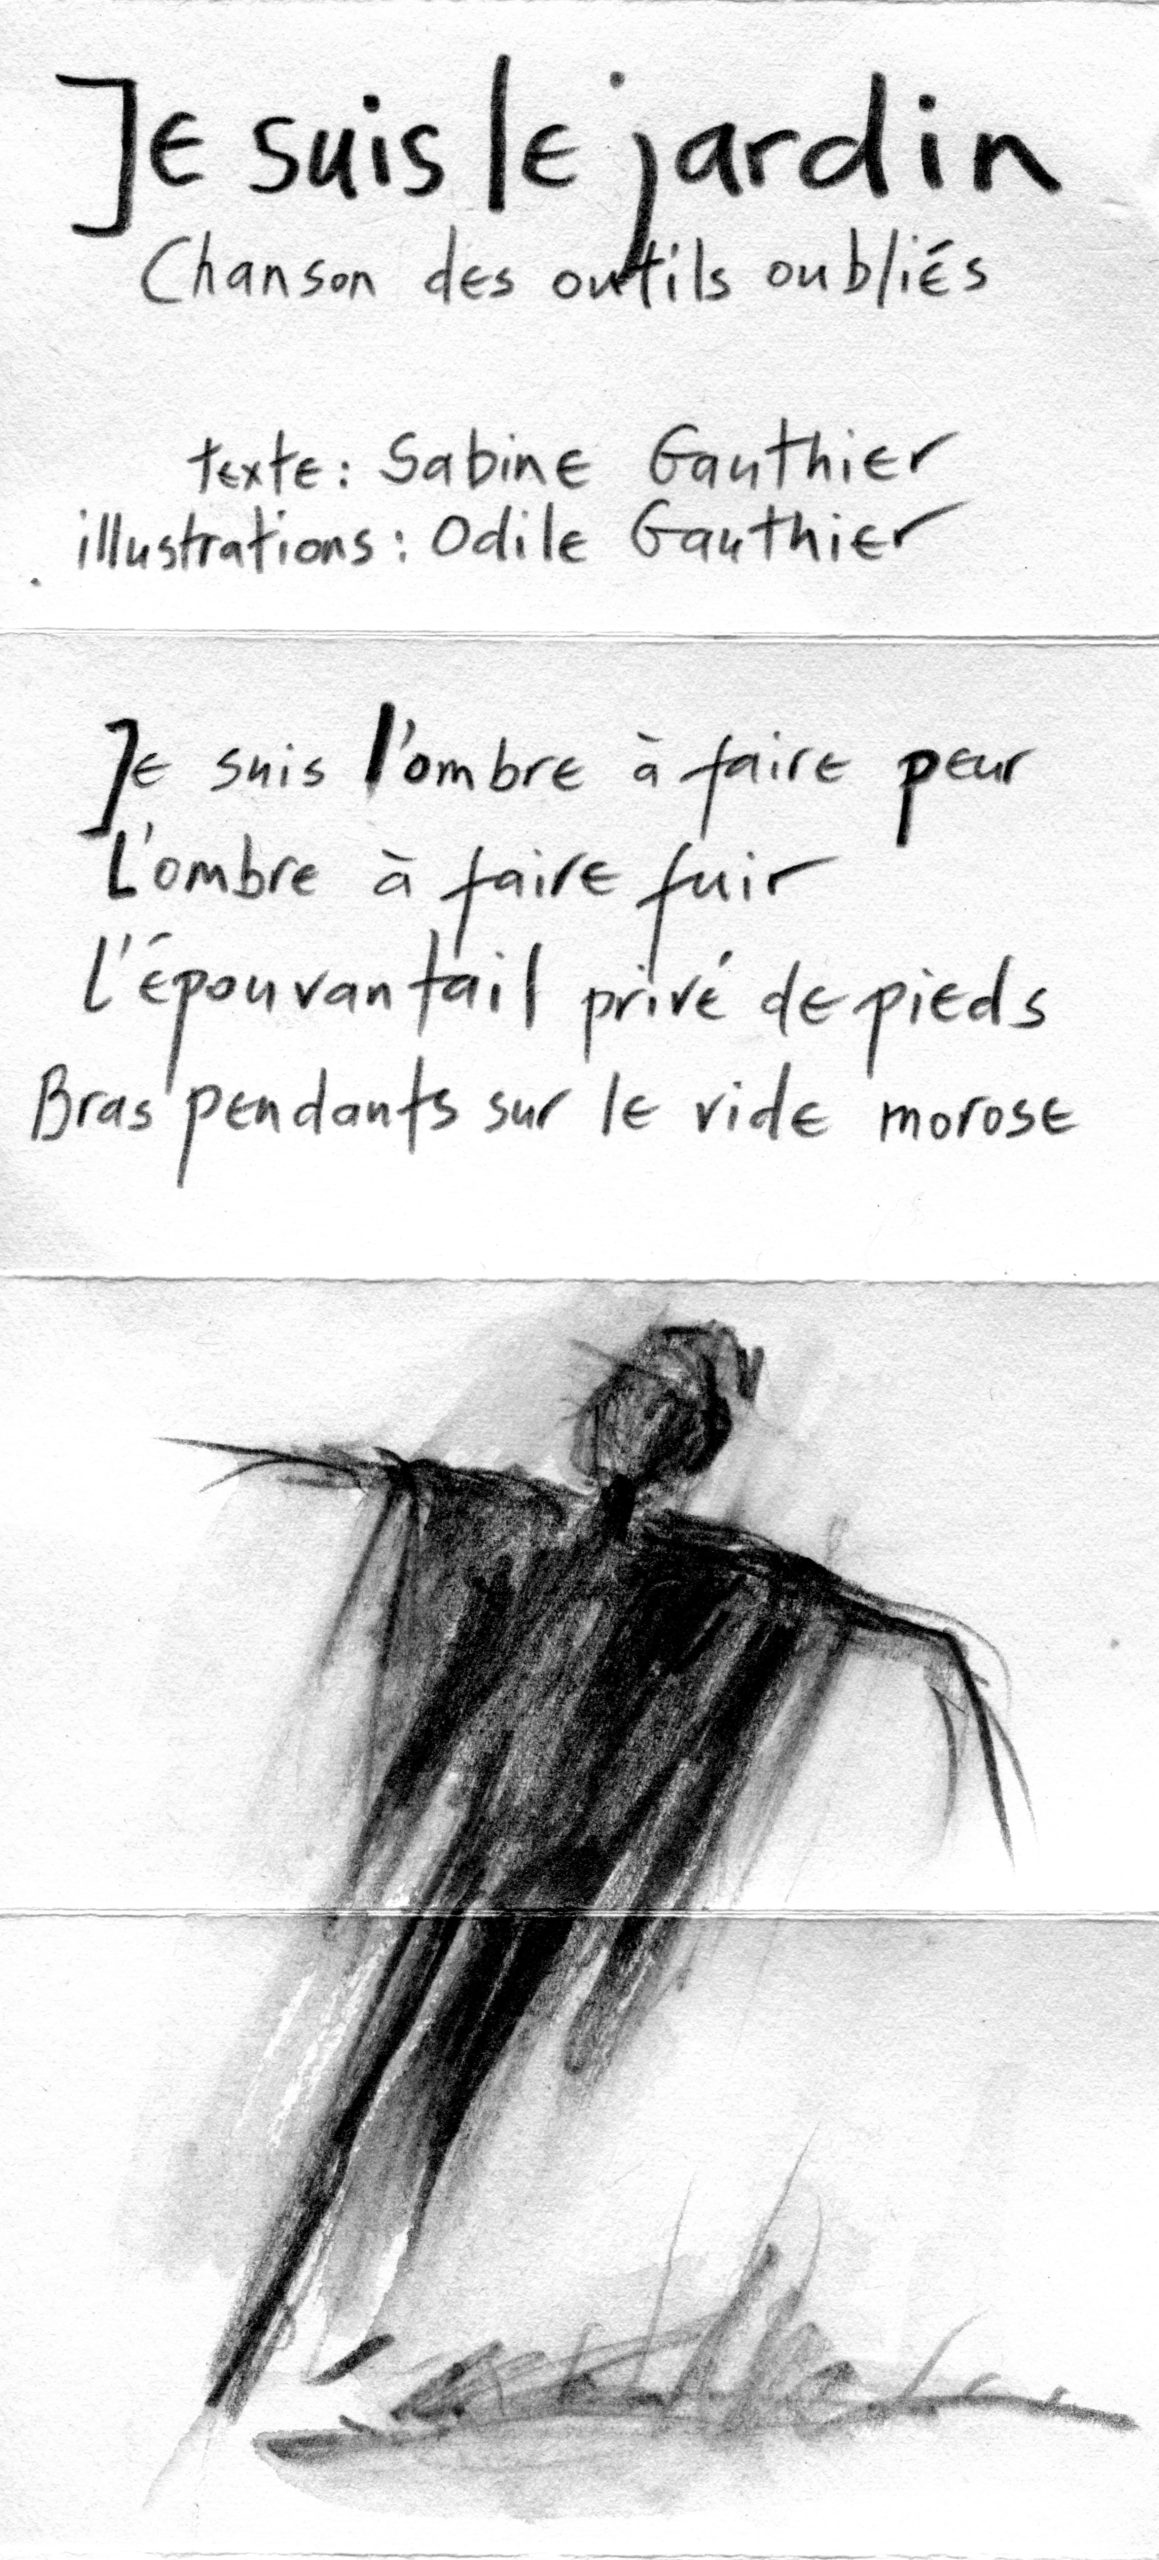 Je suis le jardin
Chanson des outils oubliés
texte: Sabine Gauthier
illustrations: Odile Gauthier
Je suis l'ombre à faire peur
L'ombre à faire fuir
l'épouvantail privé de pieds
Bras pendants sur le vide morose